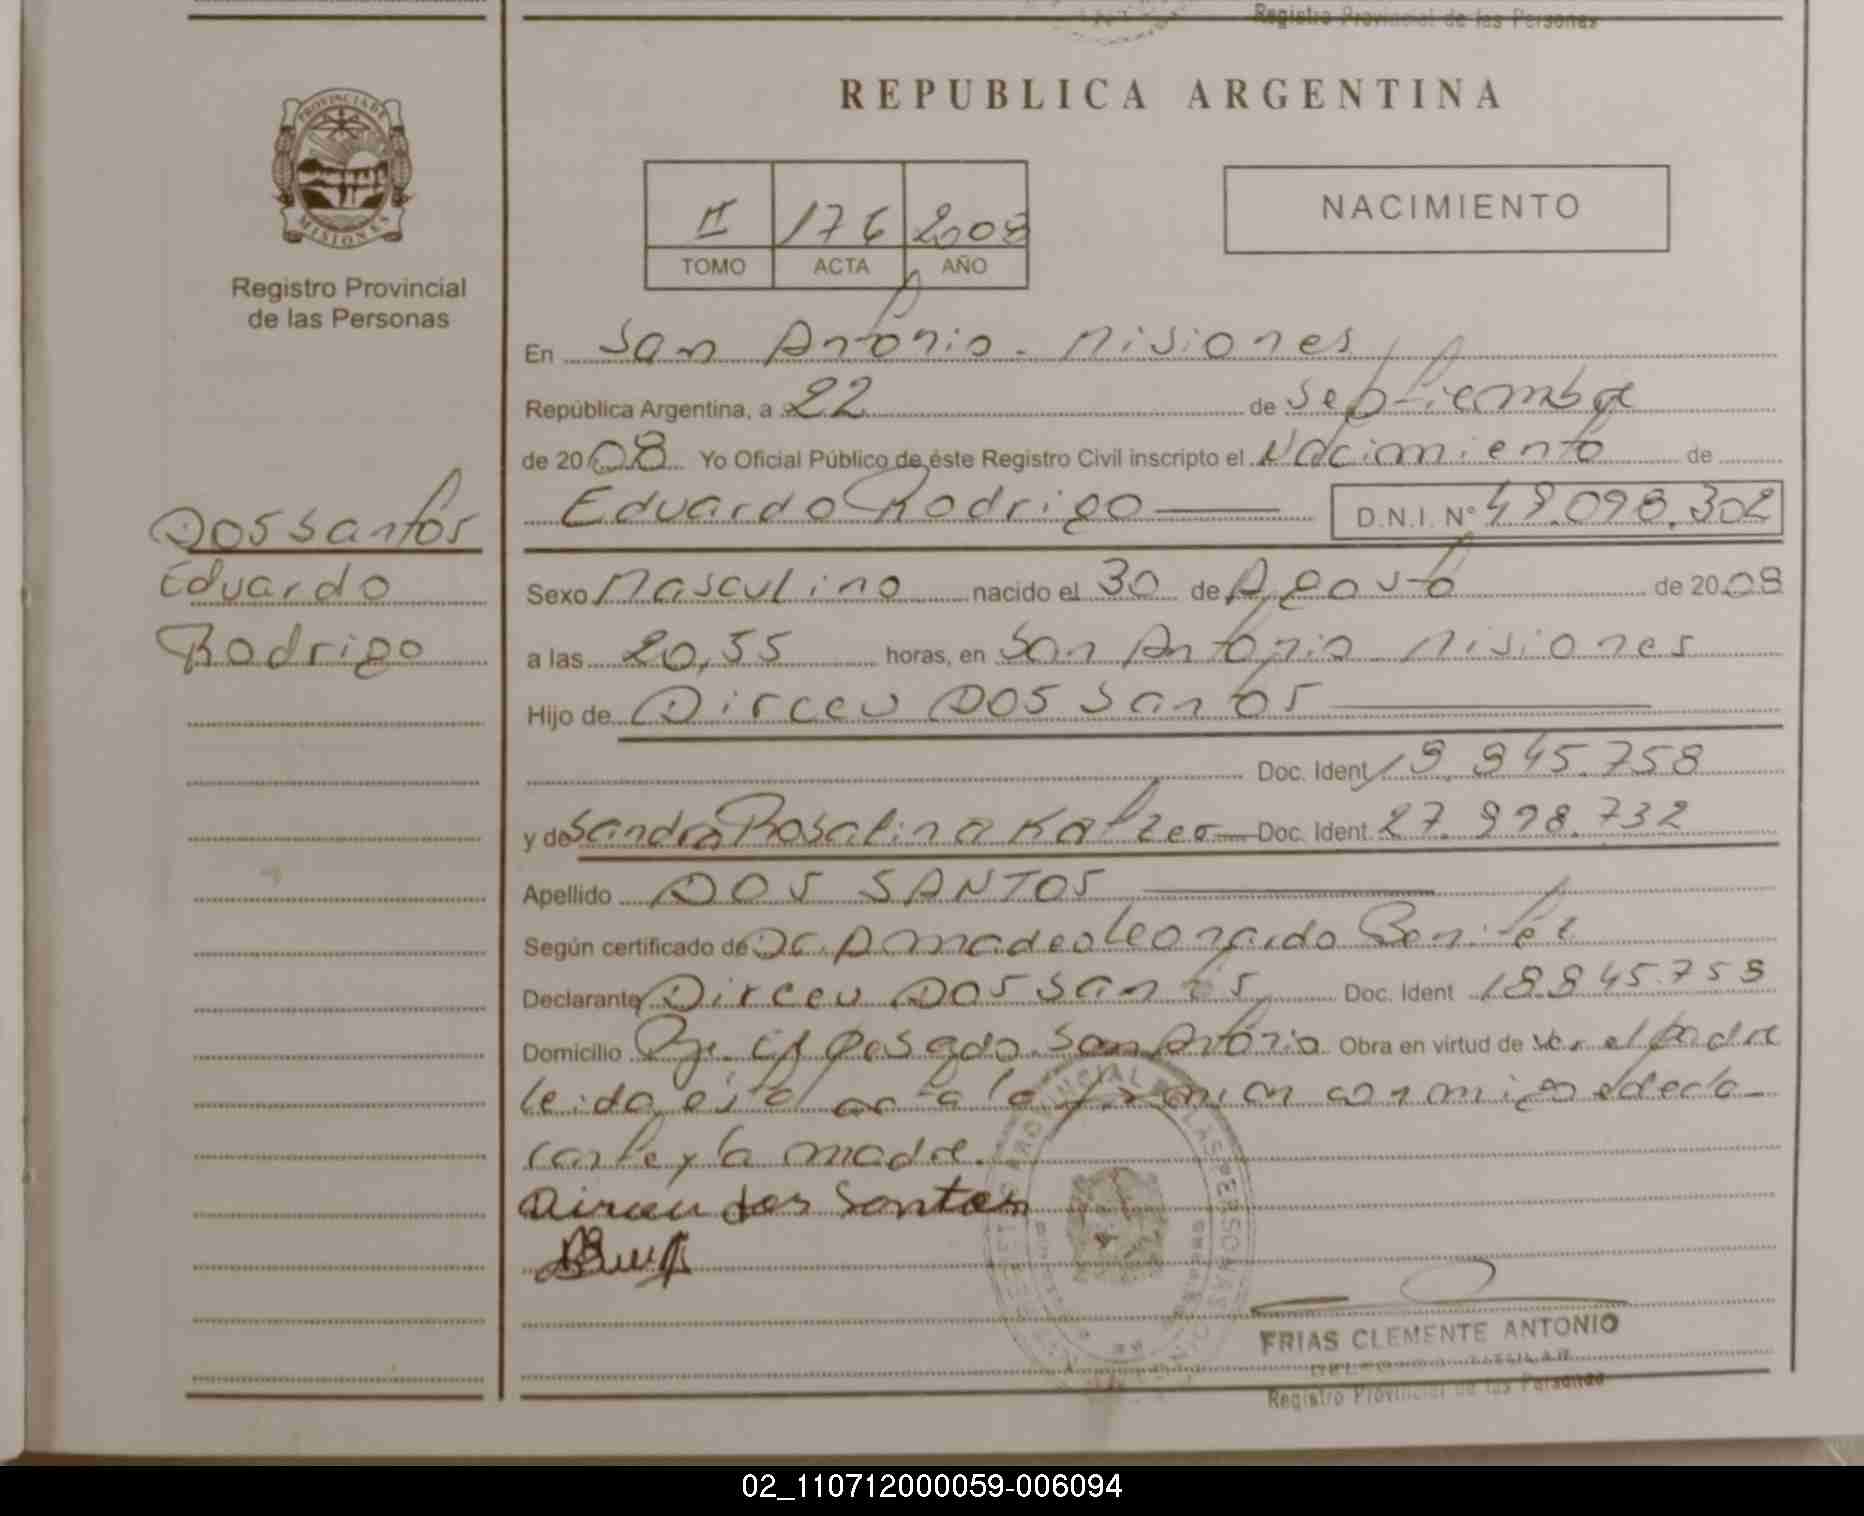 Registro Provincial de las Personas
REPUBLICA ARGENTINA
PROVINCIA DE
MISIONES
II 176 2008
TOMO ACTA AÑO
NACIMIENTO
Registro Provincial
de las Personas
En San Antonio - Misiones
República Argentina, a 22 de septiembre
de 2008 Yo Oficial Público de éste Registro Civil inscripto el Nacimiento de
Eduardo Rodrigo D.N.I. Nº 49.098.302
Dos santos
Eduardo
Rodrigo
Sexo Masculino nacido el 30 de Agosto de 2008
a las 20,55 horas, en San Antonio Misiones
Hijo de Dirceu Dos Santos
Doc. Ident
y de Sandra Rosalina Doc. Ident.
Apellido DOS SANTOS
Según certificado de Dr. Amadeo Leonardo
Declarante Dirceu Dos Santos Doc. Ident
Domicilio San Antonio Obra en virtud de ser el padre
leida esta acta la firman conmigo el decla-
rante y la madre.
Dirceu dos Santos
FRIAS CLEMENTE ANTONIO
Registro Provincial de las Personas
02_110712000059-006094